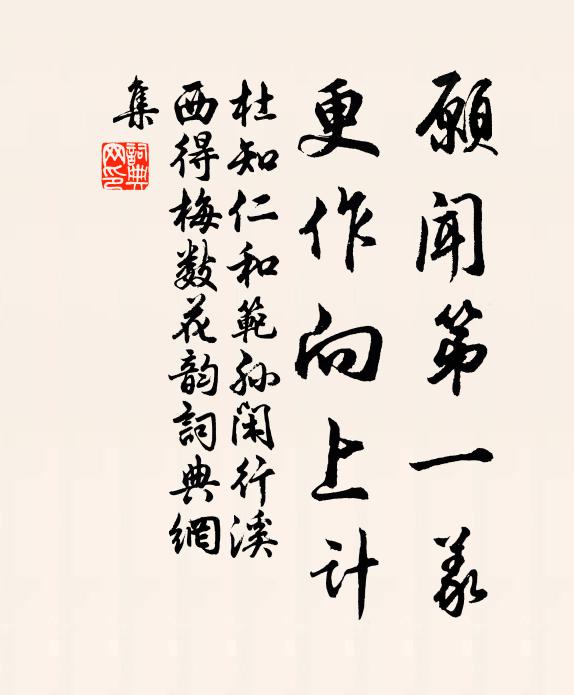 願聞第一義
更作向上計
杜知仁和範孫閑行溪
西得梅數花韵詞典網
集
詞典
网印